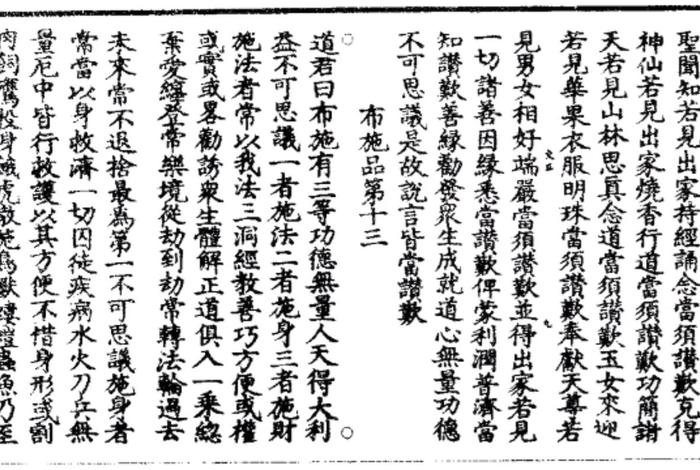 聖聞知若見出家持經誦念當須讃歎克得
神仙若見出家燒香行道當須讃歎功簡諸
天若見山林思真念道當須讃歎玉女來迎
若見華果衣服明珠當須讃歎奉獻天尊若
見男女相好端嚴當須讃歎並得出家若見
一切諸善因縁悉當讃歎俾蒙利潤普濟當
知讃歎善縁勸發衆生成就道心無量功德
不可思議是故說言皆當讃歎
布施品第十三
道君曰布施有三等功德無量人天得大利
益不可思議一者施法二者施身三者施財
施法者常以我法三洞經教善巧方便或權
或實或畧勸誘衆生體解正道俱入一乘總
棄愛纏登常樂境從劫到劫常轉法輪過去
未來常不退捨最為第一不可思議施身者
常當以身救濟一切囚徒疾病水火刀兵無
量厄中皆行救護以其方便不惜身形或割
肉飼鷹投身餓虎救施鳥獸螻螘蟲魚乃至